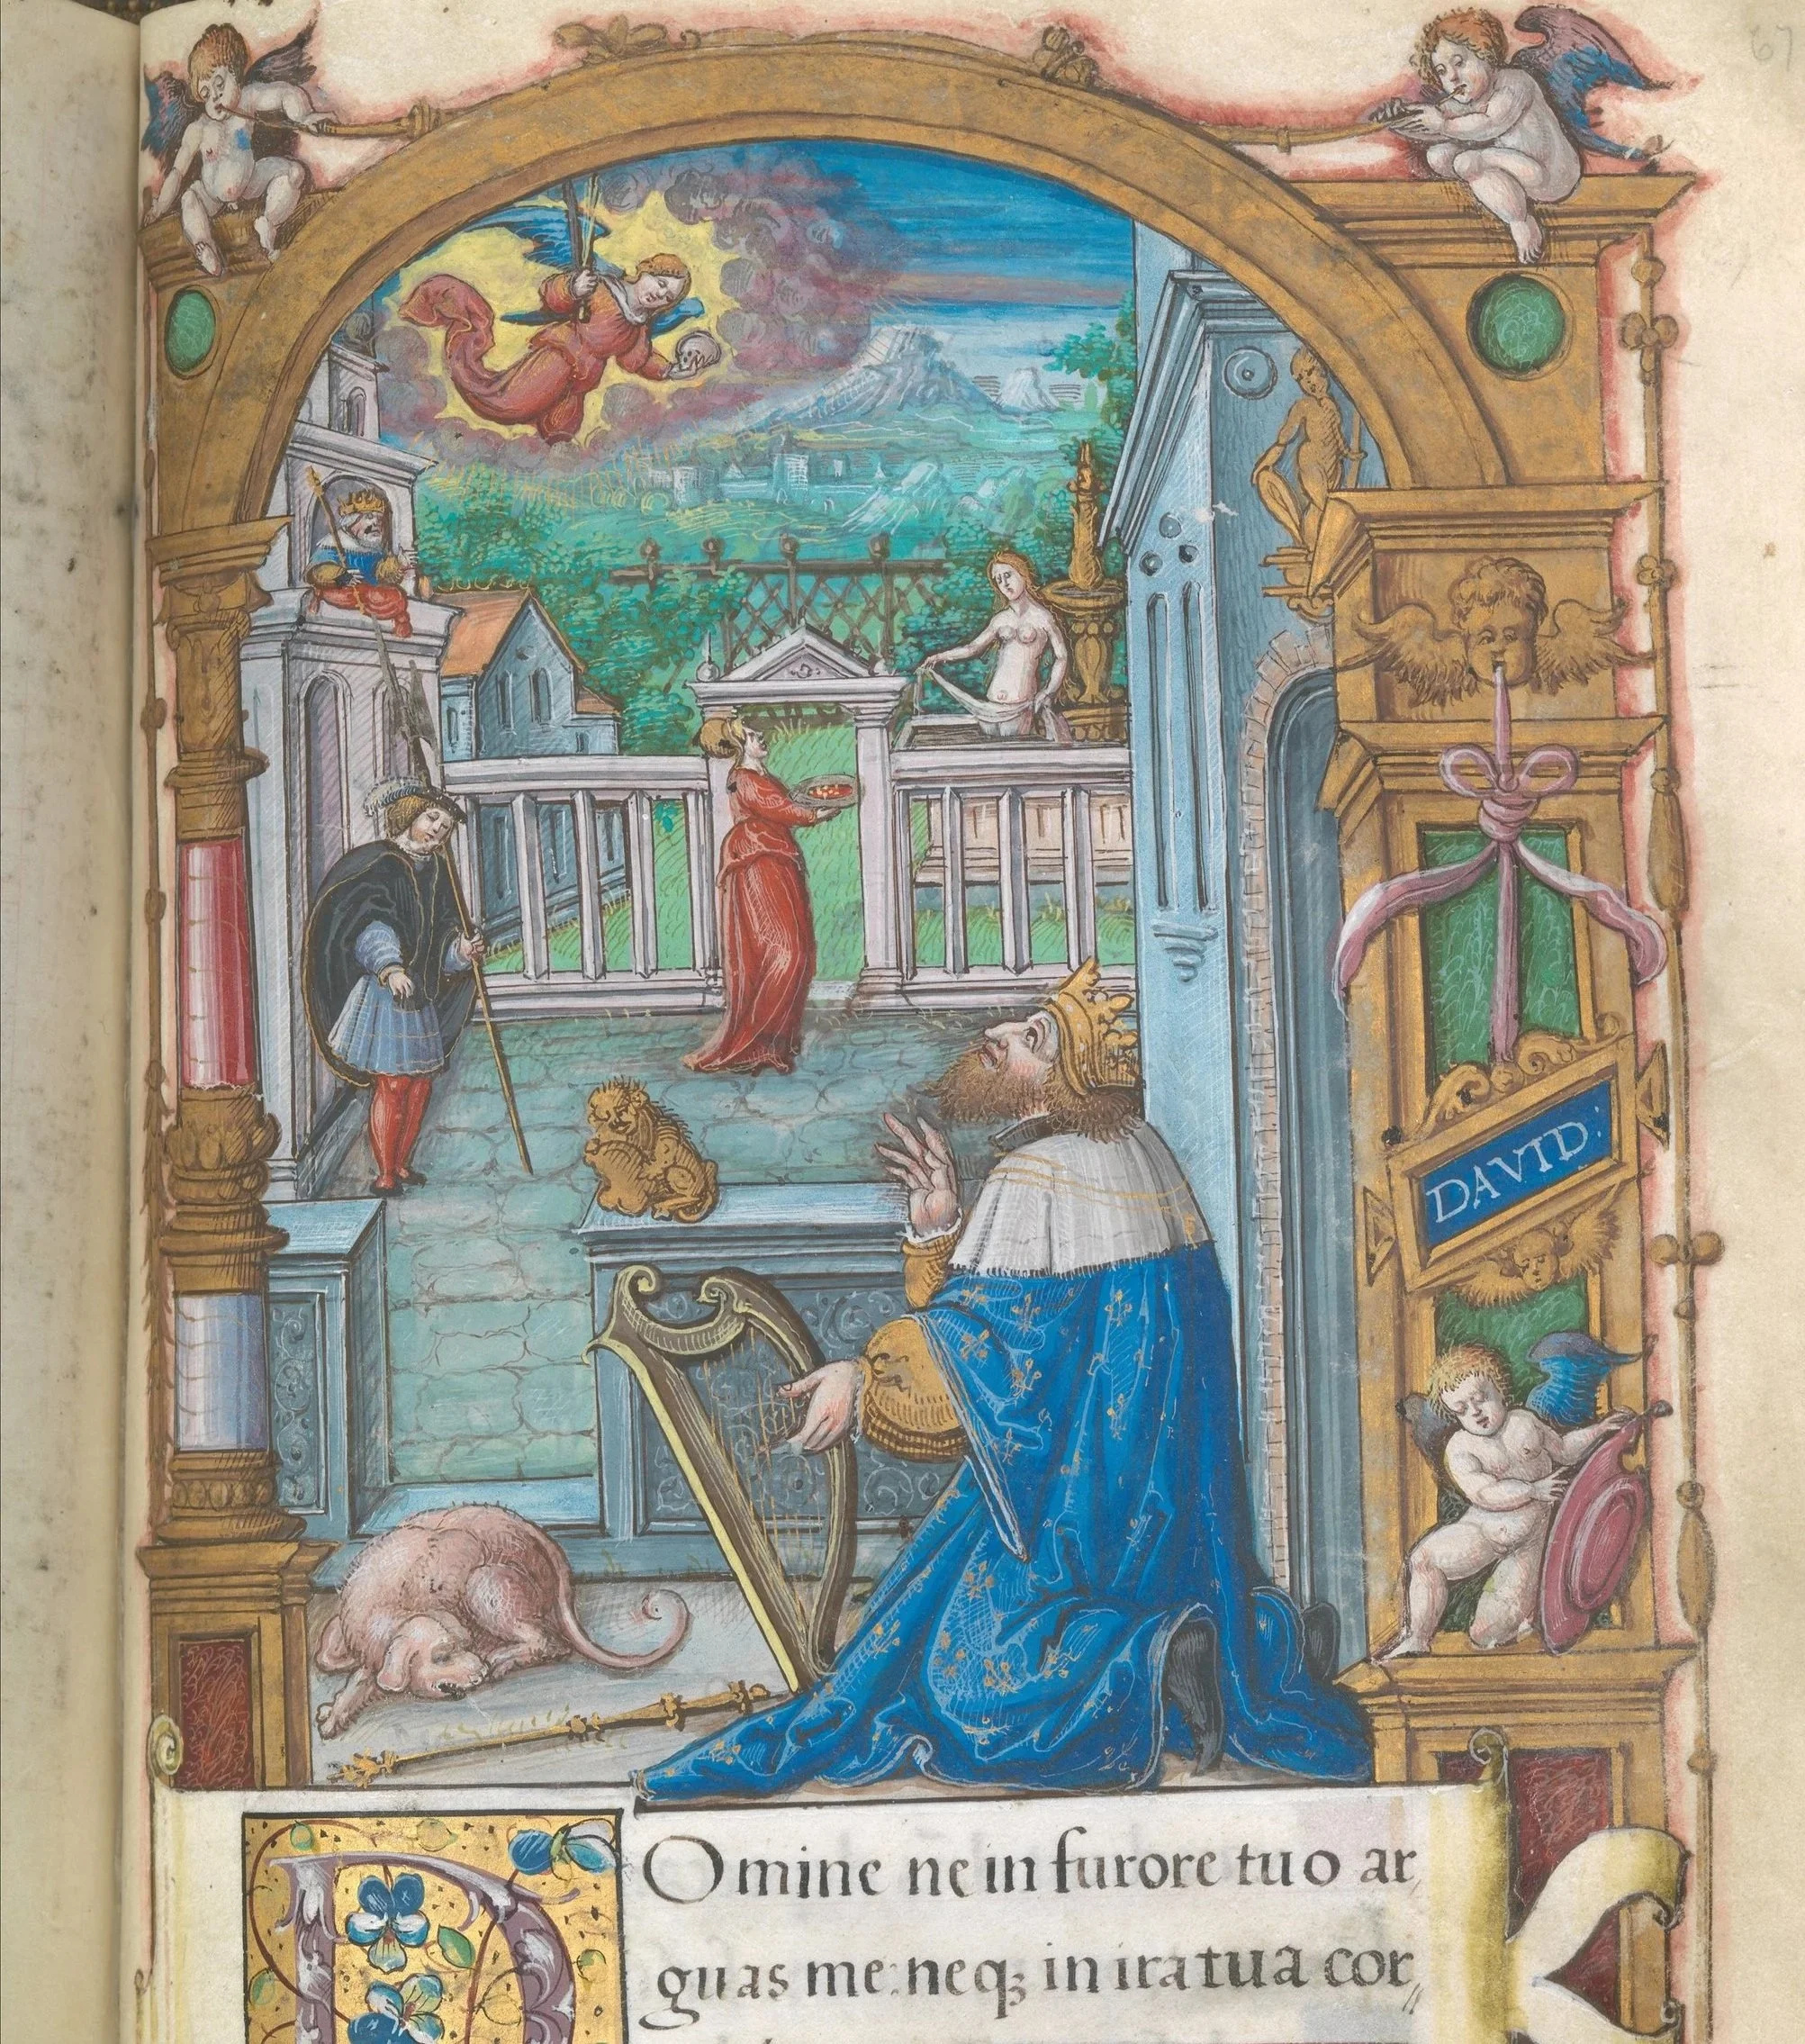 67
DAVID.
DOmine ne in furore tuo ar,
guas me: neqꝫ in ira tua cor,,